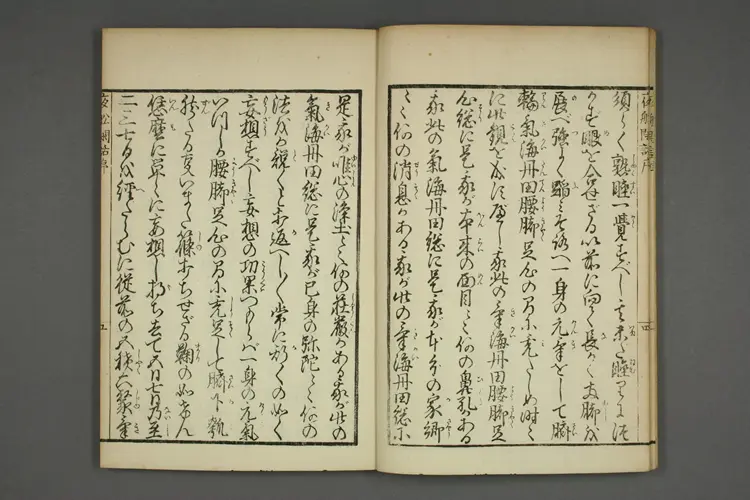 夜船閑話序
須らく熟睡一覺すべし其未だ睡りにつ
かず眼を合せざる以前に向て長く両脚を
展べ強く踏みそろへ一身の元氣をして臍
輪氣海丹田腰脚足心の間に充たしめ時々
に此觀を成す可し我此の氣海丹田腰脚足
心総に是我が本来の面目々々何の鼻孔かある
我此の氣海丹田総に是我が本分の家郷
々々何の消息かある我が此の氣海丹田総に
四
是我が唯心の浄土々々何の荘嚴かある我が此の
氣海丹田総に是我が己身の弥陀々々何の
法をか説くと打返し〱常に斯くの如く
妄想すべし妄想の功果つもらば一身の元氣
いつしか腰脚足心の間に充足して臍下瓠
然たる事いまだ篠打ちせざる鞠の如けん
恁麼に單々に妄想し将ち去て五日七日乃至
二三七日を經たらむに従前の五積六聚氣
夜船閑話序
五